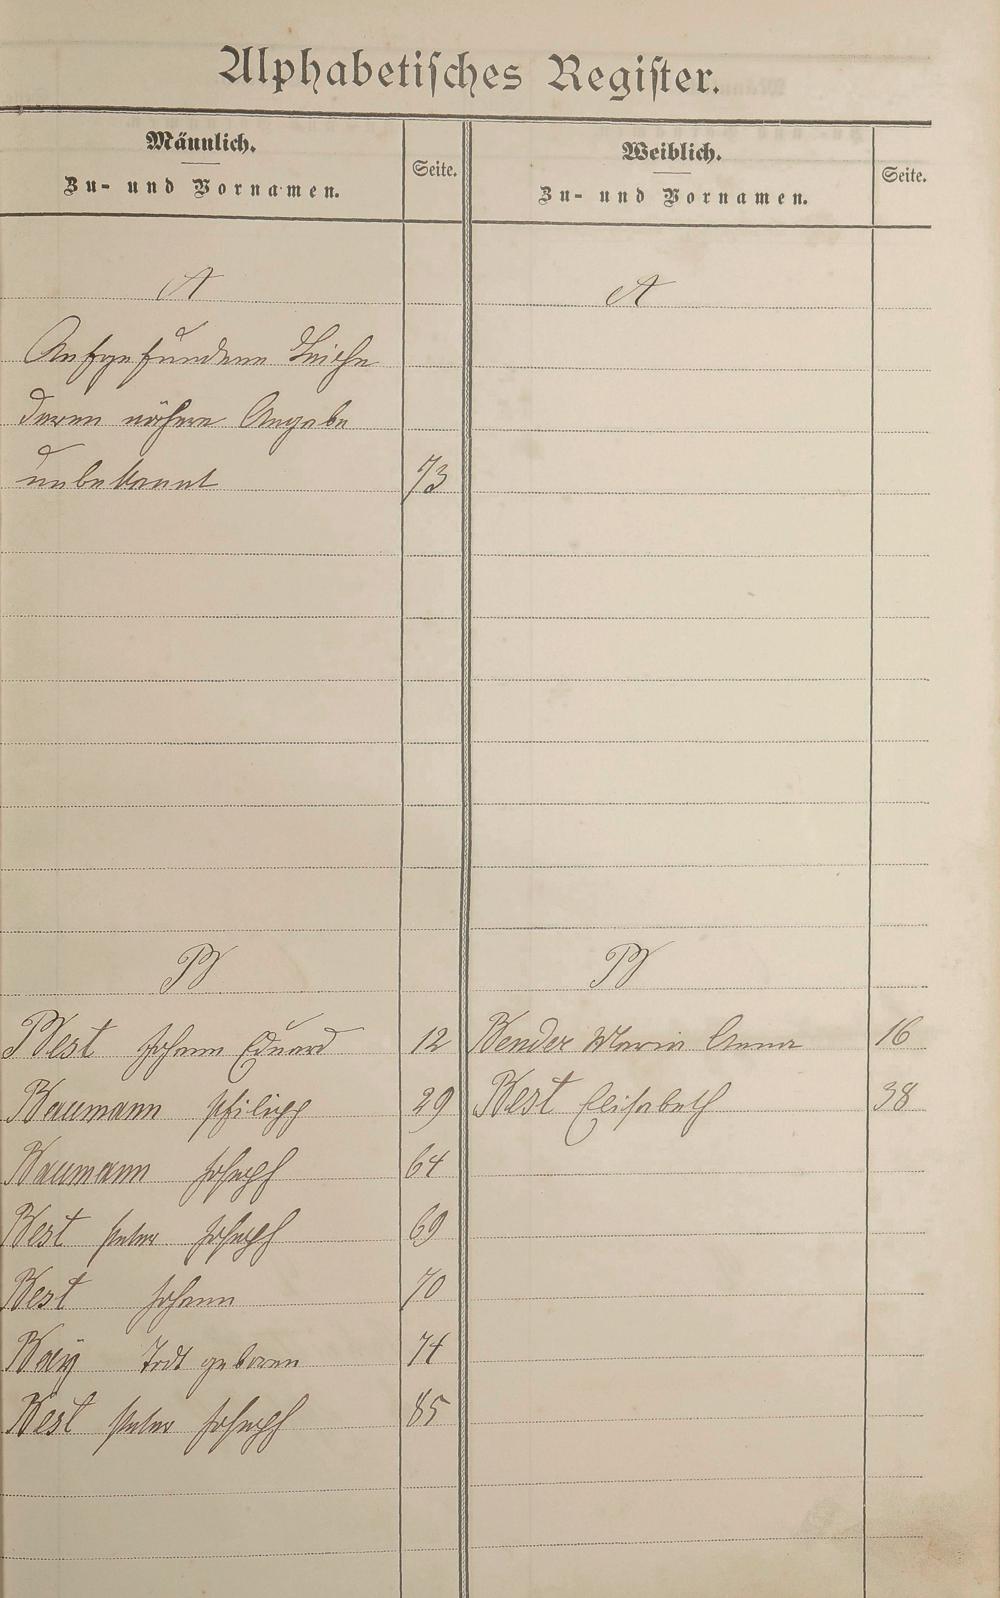 Alphabetisches Register.
Männlich.
Zu- und Vornamen.
Seite.
Weiblich.
Zu- und Vornamen.
Seite.
A
Aufgefundene Leiche
deren nähere Angabe
unbekannt 73
B
Best Johann Eduard 12
Baumann Philipp 29
Baumann Joseph 64
Best Peter Joseph 69
Best Johann 70
Todt geboren 74
Best Peter Joseph 85
A
B
Bender Maria Anna 16
Best Elisabeth 38